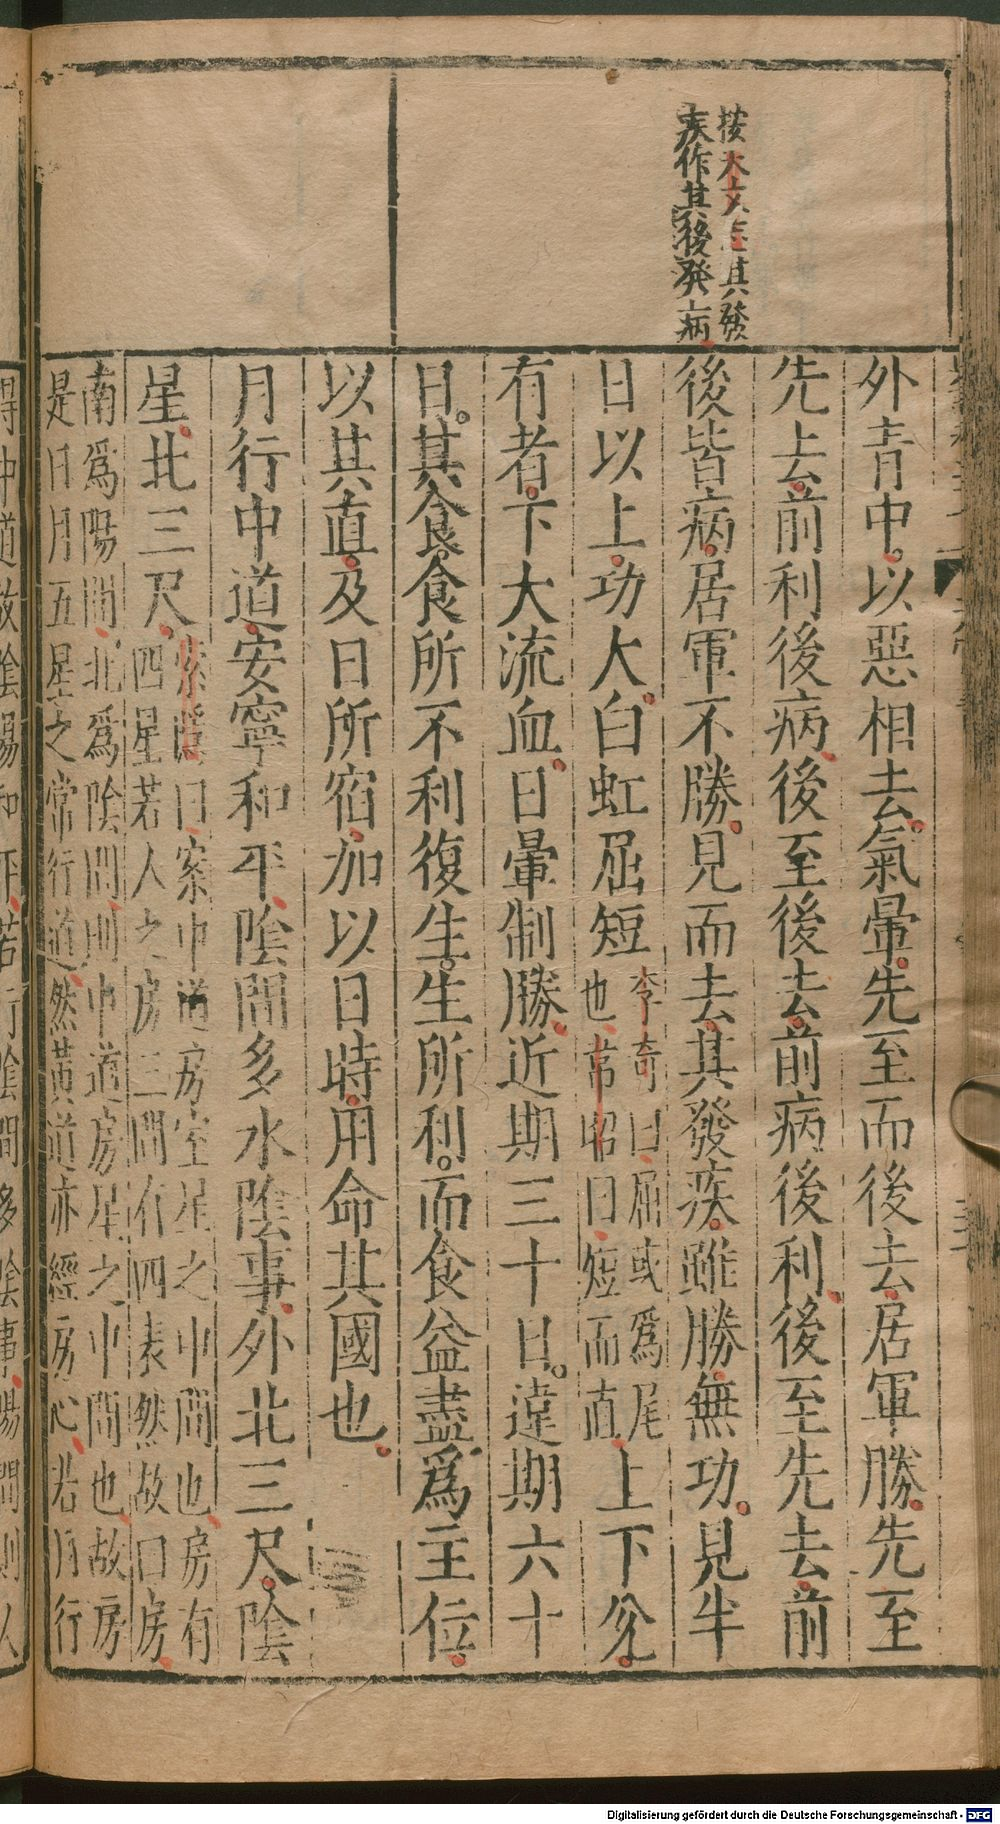 按天文志其發
疾作其後發病
外青中以惡相去氣暈先至而後去居軍勝先至
先去前利後病後至後去前病後利後至先去前
後皆病居軍不勝見而去其發疾雖勝無功見半
日以上功大白虹屈短李奇曰屈或爲尾也韋昭曰短而直上下兌
有者下大流血日暈制勝近期三十日遠期六十
日其食食所不利復生生所利而食益盡爲主位
以其直及日所宿加以日時用命其國也
月行中道安寧和平陰間多水陰事外北三尺陰
星北三尺索隱曰案中道房室星之中間也房有四星若人之房三間有四表然故曰房
南爲陽間北爲陰間則中道房星之中間也故房
是日月五星之常行道然黃道亦經房心若月行
得中道故陰陽和平若行陰間多陰事陽間則人
Digitalisierung gefördert durch die Deutsche Forschungsgemeinschaft - DFG